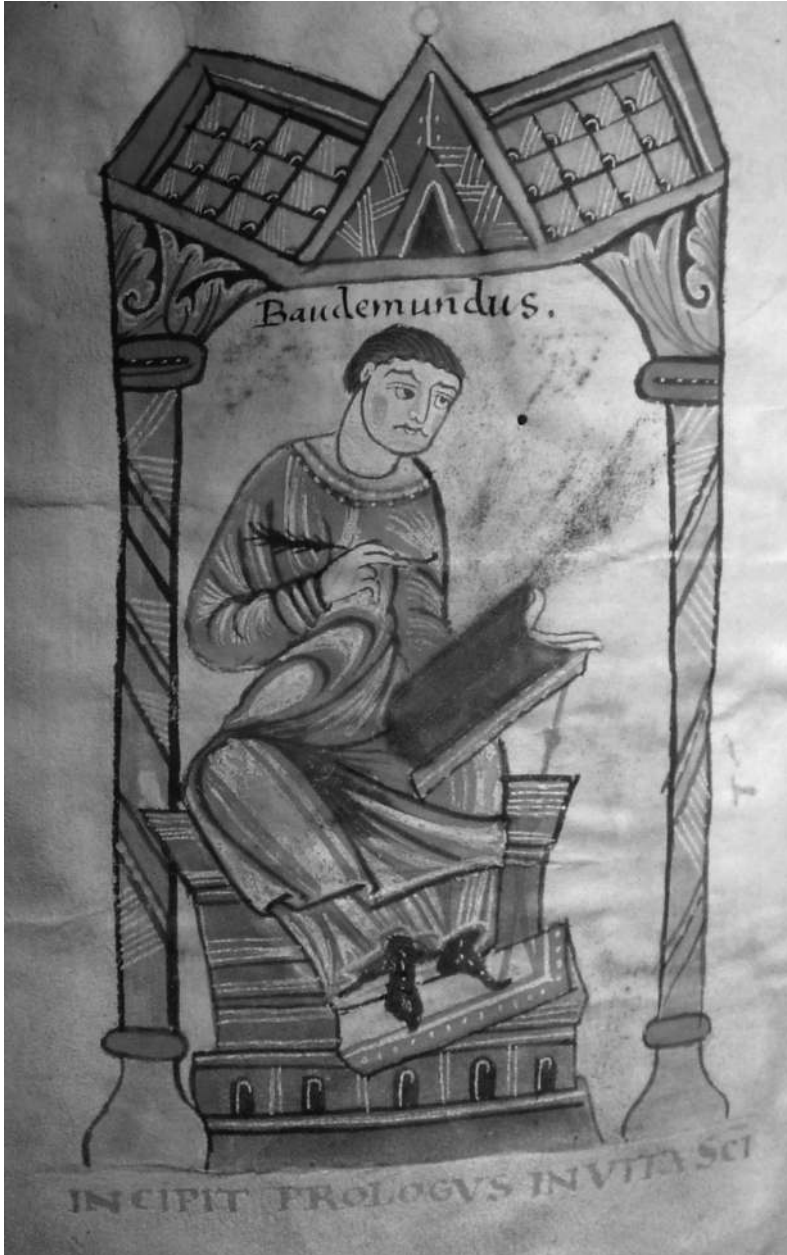 Baudemundus.
INCIPIT PROLOGVS IN VITA SCĪ